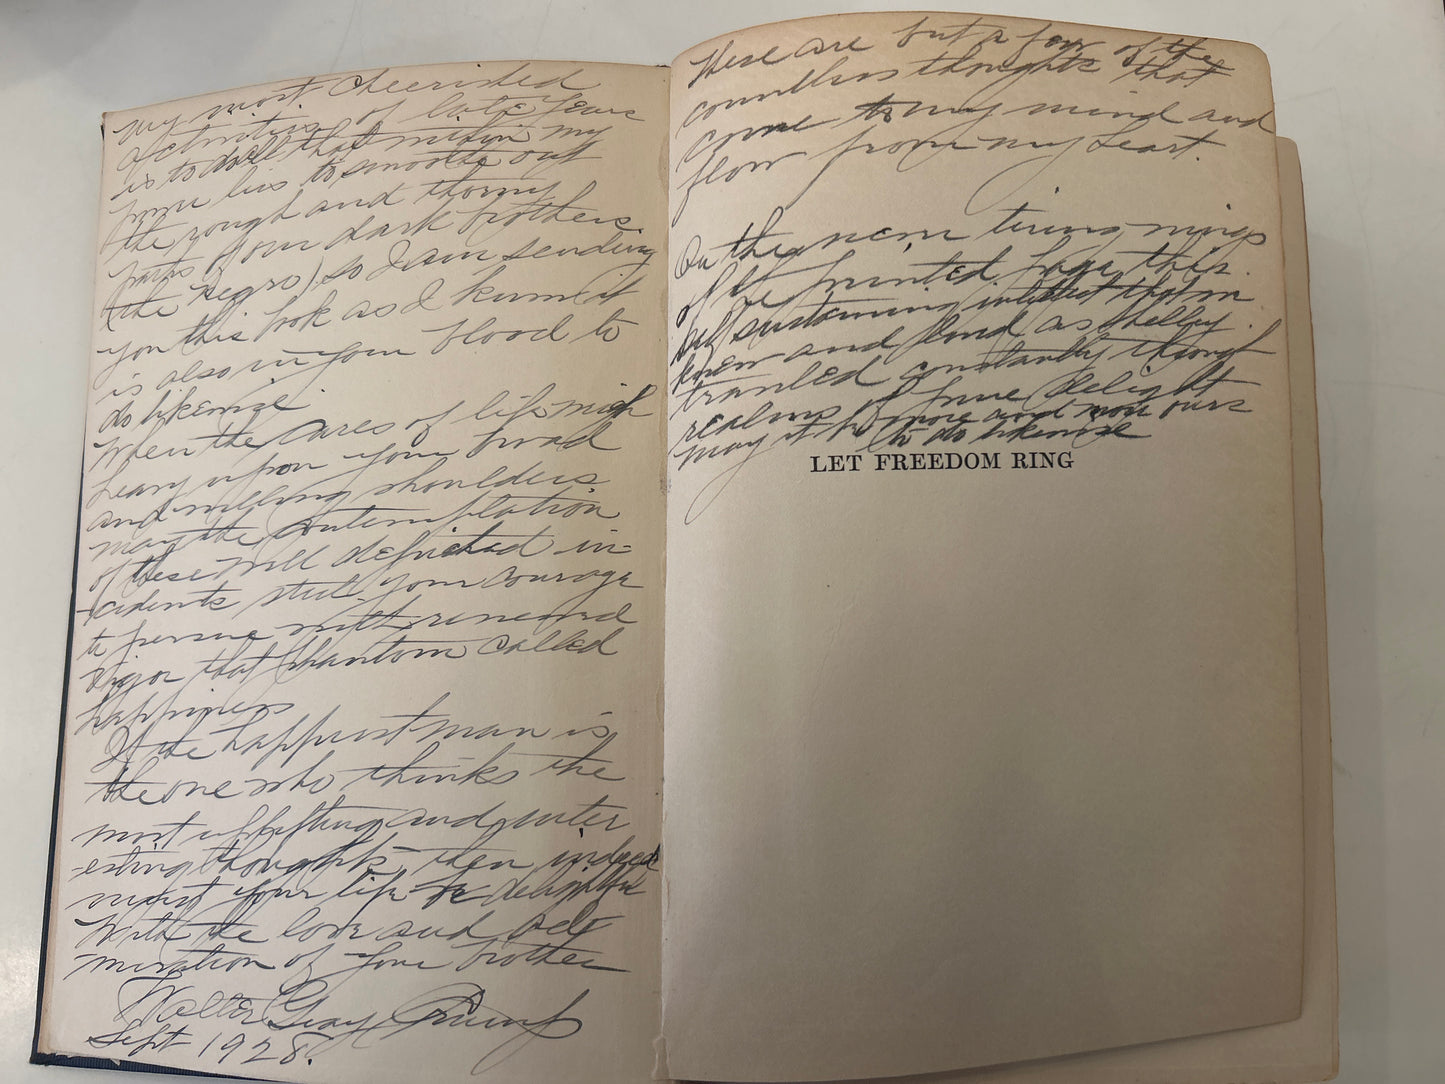 my most cheerished
activities of late years
is to do all that within my
power lies to smoothe out
the rough and thorny
paths of our dark brothers
(the Negro) so I am sending
you this book as I know it
is also in your blood to
do likewise
When the cares of life weigh
heavy upon your broad
and willing shoulders
may the contemplation
of these well depicted in-
-cidents steel your courage
to persue with renewed
vigor that phantom called
happiness
If the happiest man is
the one who thinks the
most uplifting and inter
-esting thoughts, then indeed
must your life be delightful
With the love and ad-
miration of your brother
Walter Gray Crump
Sept 1928.
These are but a few of the
countless thoughts that
come to my mind and
flow from my heart.
On the never tiring wings
of the printed page, this
self sustaining intellect that
knew and loved as Shelley
traveled constantly through
realms of pure delight
may it be more and more ours
to do likewise
LET FREEDOM RING